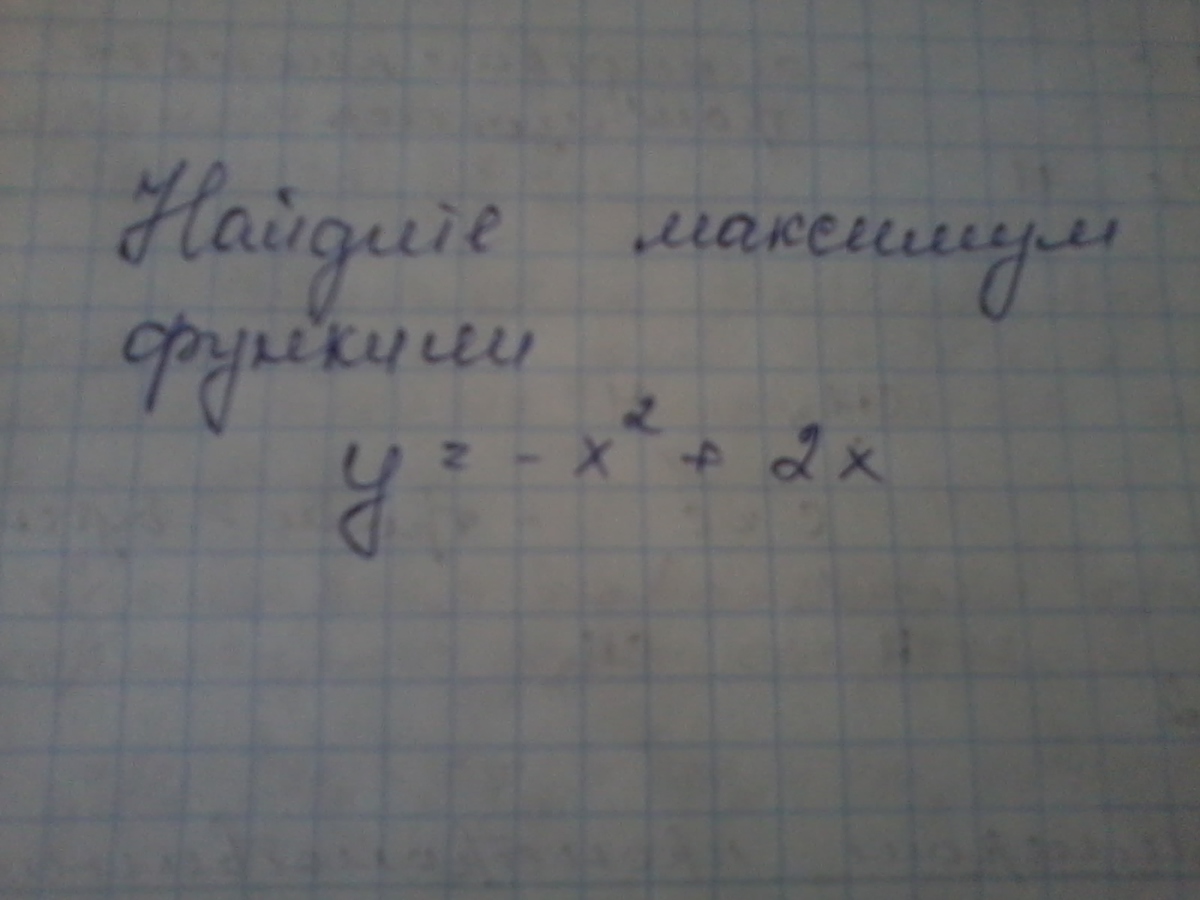 Найдите максимум
функции
y = - x² + 2x